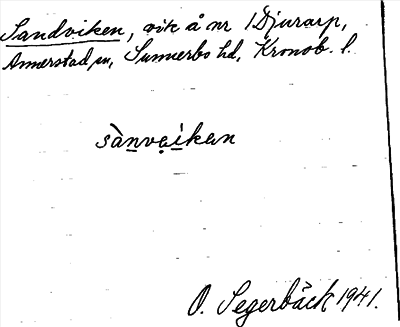 Sandviken, vik å nr 1 Djurarp,
Annerstad sn, Sunnerbo hd, Kronob. l.
sànvaikan
O. Segerbäck 1941.